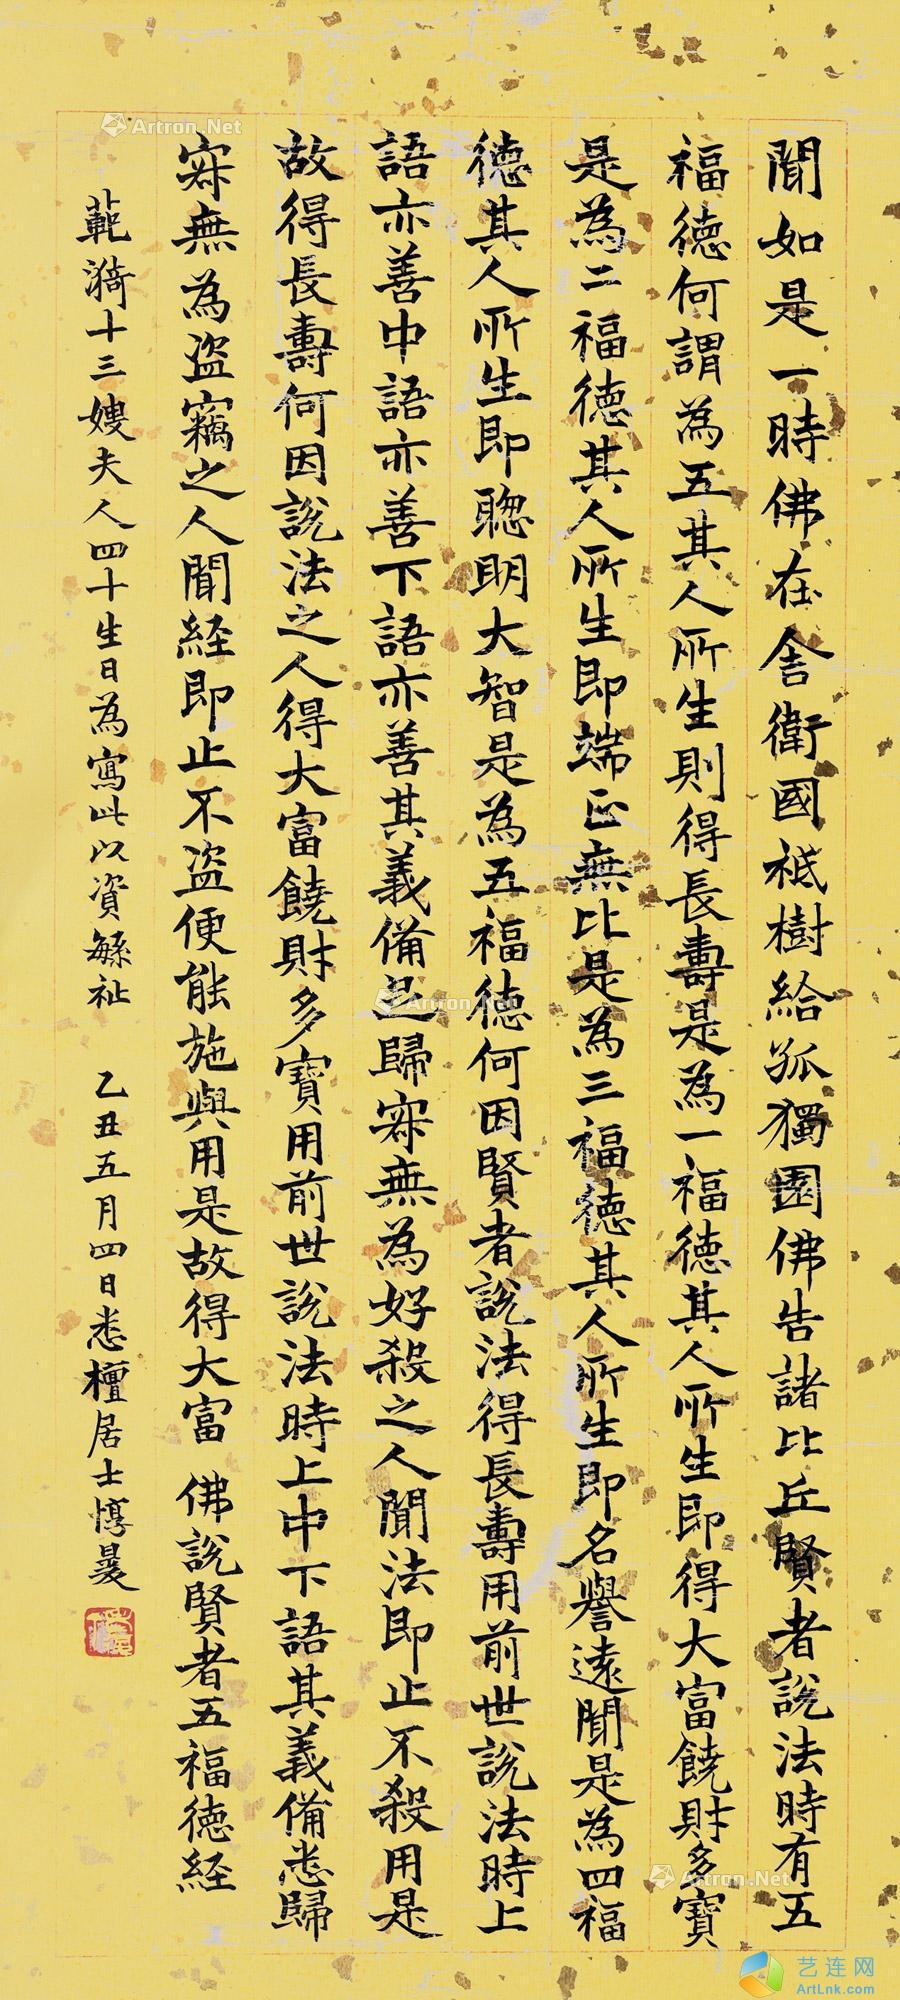 聞如是一時佛在舍衛國祇樹給孤獨園佛告諸比丘賢者說法時有五
福德何謂為五其人所生則得長壽是為一福德其人所生即得大富饒財多寶
是為二福德其人所生即端正無比是為三福德其人所生即名譽遠聞是為四福
德其人所生即聰明大智是為五福德何因賢者說法得長壽用前世說法時上
語亦善中語亦善下語亦善其義備足歸寂無為好殺之人聞法即止不殺用是
故得長壽何因說法之人得大富饒財多寶用前世說法時上中下語其義備悉歸
寂無為盜竊之人聞経即止不盜便能施與用是故得大富 佛說賢者五福德経
範漪十三嫂夫人四十生日為寫此以資緐祉 乙丑五月四日悉檀居士惇㬊
Artron.Net
Artron.Net
Artron.Net
Artron.Net
Artron.Net
艺连网
ArtLnk.com